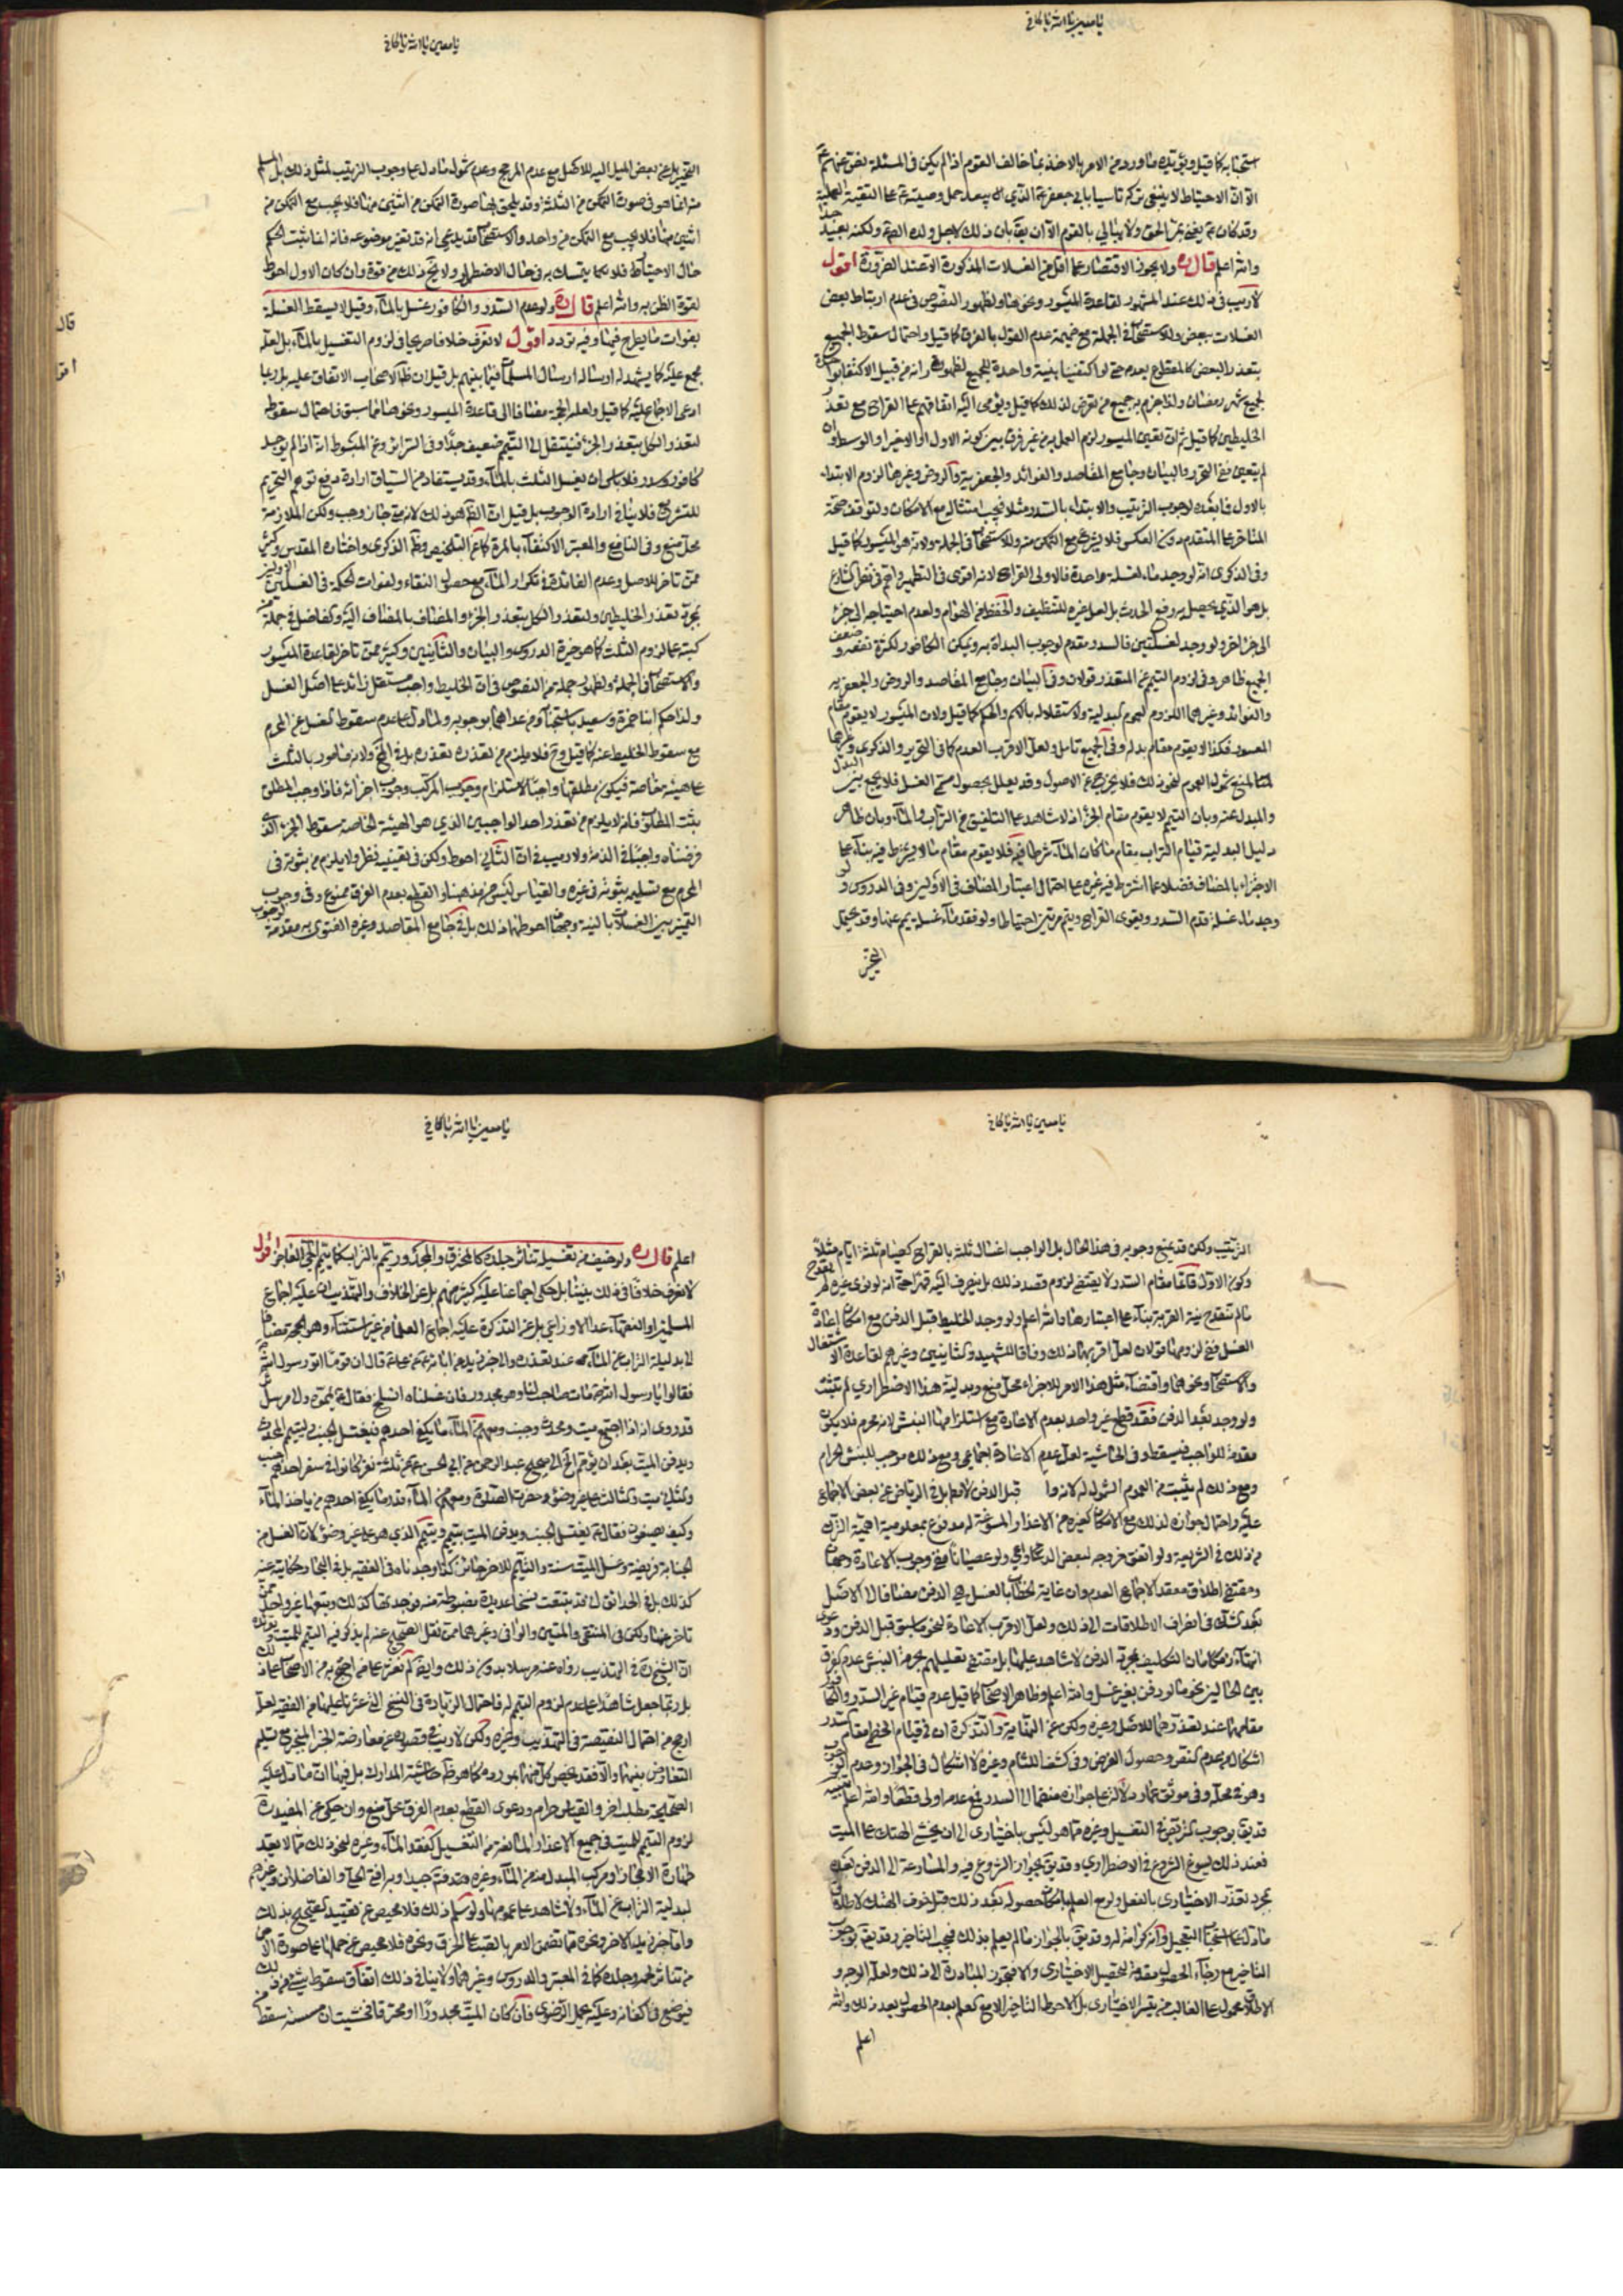 يا معين يا الله يا كافي
استحبابه كما قيل ويؤيده ما ورد من الامر بالاخذ بما خالف القوم اذا لم يكن في المسئلة نص عنهم
الا ان الاحتياط لا ينبغي تركه تاسيا بابي جعفر الذي يبعد حمل وصيته على التقية
وقد كان يفتي بمر الحق ولا يبالي بالقوم الا ان يقال بان ذلك لاجل ولده ولكنه بعيد جدا
والله اعلم قال ره ولا يجوز الاقتصار على اقل من الغسلات المذكورة الا عند الضرورة اقول
لا ريب في ذلك عند المشهور لقاعدة الميسور ونحوها ولظهور النصوص في عدم ارتباط بعض
الغسلات ببعض وللاستصحاب في الجملة مع ضميمة عدم القول بالفرق كما قيل واحتمال سقوط الجميع
بتعذر البعض كما لمقطوع بعدمه حتى لو اكتفينا بنية واحدة للجميع لظهور انه من قبيل الاكتفاء
الخليطين كما قيل ثم ان تعين الميسور لزم العمل به من غير فرق بين كونه الاول او الاخير او الوسط وان
لم يتعين ففي التحرير والبيان وجامع المقاصد والفوائد والجعفرية والروض وغيرها لزوم الابتداء
بالاول فما بعده لوجوب الترتيب والابتداء بالسدر مثلا فيجب امتثاله مع الامكان ولتوقف صحة
المتاخر على المتقدم دون العكس فلا يشرع مع التمكن منه وللاستصحاب في الجملة ولانه هو الميسور كما قيل
وفي الذكرى انه لو وجد ماء لغسلة واحدة فالاولى القراح لانه اقوى في التطهير
بل هو الذي يحصل به رفع الحدث بل لعل غيره للتنظيف والحفظ من الهوام ولعدم احتياجه الى جزء
الى جزء اخر ولو وجد لغسلتين فالسدر مقدم لوجوب البداة به ويمكن الكافور لكثرة نفعه وضعف
الجميع ظاهر وفي لزوم التيمم عن المتعذر قولان وفي البيان وجامع المقاصد والروض والجعفرية
والفوائد وغيرها اللزوم لعموم البدلية ولاستقلاله بالاسم والحكم كما قيل ولان الميسور لا يقوم مقام
المعسور فكذا لا يقوم مقام بدله وفي الجميع تامل ولعل الاقرب العدم كما في التحرير والذكرى وغيرها
لمنع شمول العموم لنحو ذلك فلا يخرج عن الاصول وقد يعلل بحصول مسمى الغسل فلا يجمع بين البدل
والمبدل عنه وبان التيمم لا يقوم مقام الجزء اذ لا شاهد على التلفيق من التراب والماء وبان ظاهر
دليل البدلية قيام التراب مقام ما كان الماء شرطا فيه فلا يقوم مقام ما لا يشترط فيه بناء على
الاجتزاء بالمضاف فضلا عما اشترط فيه غيره على احتمال اعتبار المضاف في الاولين وفي الدروس ولو
وجد ماء غسلة قدم السدر ويقوى القراح ويتيمم مرتين احتياطا ولو فقد ماء غسلة يمم عنها وقد يحتمل
التخيير
يا معين يا الله يا كافي
التخيير بل عن بعض الميل اليه للاصل مع عدم المرجح وعدم شمول ما دل على وجوب الترتيب لمثل ذلك بل المسلم
منه انما هو في صورة التمكن من الثلثة وقد يلحق بها صورة التمكن من اثنين منها فلا يجب مع التمكن من
اثنين منها فلا يجب مع التمكن من واحد والاستصحاب قد يدعى انه قد تغير موضوعه فانه انما ثبت الحكم
حال الاختيار فلا يتمسك به في حال الاضطرار ولا يخ ذلك من قوة وان كان الاول احوط
لقوة الظن به والله اعلم قال ره ولو عدم السدر والكافور غسل بالماء وقيل لا يسقط الغسلة
بفوات ما يطرح فيها وفيه تردد اقول لا نعرف خلافا صريحا في لزوم التغسيل بالماء بل لعله
مجمع عليه كما يشهد له ارساله ارسال المسلمات فيما بينهم بل قيل ان ظاهر الاصحاب الاتفاق عليه بل ربما
ادعى الاجماع عليه كما قيل ولعله الحجة مضافا الى قاعدة الميسور ونحوها مما سبق فاحتمال سقوطه
لتعذر الكل بتعذر الجزء فينتقل الى التيمم ضعيف جدا وفي السرائر وعن المبسوط انه اذا لم يوجد
كافور وسدر فلا باس ان يغسل الثلث بالماء وقد يستفاد من السياق ارادة دفع توهم التحريم
للتشريع فلا ينافي ارادة الوجوب بل قيل ان الظاهر هو ذلك لانه متى جاز وجب ولكن الملازمة
محل منع وفي النافع والمعتبر الاكتفاء بالمرة كما عن التلخيص وظاهر الذكرى واختاره المقدس وكثير
ممن تاخر للاصل وعدم الفائدة في تكرار الماء مع حصول النقاء ولفوات الحكمة في الغسلتين الاوليين
كتبه على لزوم الثلث كما هو خيرة الدروس والبيان والثانيين وكثير ممن تاخر لقاعدة الميسور
والاستصحاب في الجملة ولظهور جملة من النصوص في ان الخليط واجب مستقل زائد على اصل الغسل
مع سقوط الخليط عنه كما قيل وح فلا يلزم من تعذره تعذره بل ولانه مامور بالثلث
على هيئة خاصة فيكون مطلقها واجبا لاستلزام وجوب المركب وجوب اجزائه فاذا وجب المطلق
يثبت المطلوب فانه لا يلزم من تعذر احد الواجبين الذي هو الهيئة الخاصة سقوط الجزء الذي
فرضناه واجبا في الذمة ولا ريب في ان الثاني احوط ولكن في تعيينه نظر ولا يلزم من ثبوته في
المحرم مع تسليمه ثبوته في غيره والقياس ليس من مذهبنا والقطع بعدم الفرق ممنوع وفي وجوب
التمييز بين الغسلات بالنية وجهان احوطهما ذلك بل في جامع المقاصد وغيره الفتوى به مقدمة لوجوب
يا معين يا الله يا كافي
الترتيب ولكن قد يمنع وجوبه في هذا الحال بل الواجب اغسال ثلثة بالقراح كصيام ثلثة ايام مثلا
وكون الاول قائما مقام السدر لا يقتضي لزوم قصد ذلك بل ينصرف اليه قهرا حتى انه لو نوى غيره لم يقدح
ما لم تنقدح نية القربة بناء على اعتبارها والله اعلم ولو وجد الخليط قبل الدفن مع امكان اعادة
الغسل ففي لزومها قولان لعل اقربهما ذلك وفاقا للشهيد والثانيين وغيرهم لقاعدة الاشتغال
والاستصحاب ونحوهما واقتضاء مثل هذا الامر للاجزاء محل منع وبدلية هذا الاضطراري لم تثبت
ولو وجد بعد الدفن فقد قطع غير واحد بعدم الاعادة مع استلزامها النبش لانه محرم فلا يكون
مقدمة للواجب فيسقط وفي الحاشية لعل عدم الاعادة اجماعي ومع ذلك موجب للنبش الحرام
ومع ذلك لم يثبت من العموم الشمول له
عليه واحتمال جوازه لذلك مع الامكان كغيره من الاعذار المسوغة له مدفوع بمعلومية اهمية الترك
من ذلك في الشريعة ولو اتفق خروجه لبعض الدواعي ولو عصيانا ففي وجوب الاعادة وجهان
ومقتضى اطلاق معقد الاجماع العدم وان غاية الخطاب بالغسل هي الدفن مضافا الى الاصل
بعد الشك في انصراف الاطلاقات الى ذلك ولعل الاقرب الاعادة لنحو ما سبق قبل الدفن ودعوى
انتهاء زمكان التكليف بمجرد الدفن لا شاهد عليها بل مقتضى تعليلهم بحرمة النبش عدم الفرق
بين الحالين نحو ما لو دفن بغير غسل والله اعلم وظاهر الاصحاب كما قيل عدم قيام غير السدر والكافور
مقامهما عند تعذرهما للاصل وغيره ولكن عن النهاية والتذكرة ان في قيام الخطمي مقام السدر
اشكال من عدم النص وحصول الغرض وفي كشف اللثام وغيره لا اشكال في الجواز وعدم الوجوب
وهو في محله وفي موثق عمار دلالة على جوازه منضما الى السدر فمع عدمه اولى قطعا والله اعلم
فعند ذلك يسوغ الشروع في الاضطراري وقد يق بجواز الشروع فيه والمسارعة الى الدفن بعده
بمجرد تعذر الاختياري بالفعل ولو مع العلم بامكان حصوله بعد ذلك قبل خوف الهتك لاطلاق
ما دل على استحباب التعجيل وانه كرامة له وقد يق بالجواز ما لم يعلم بذلك فيجب التاخير وقد يق بوجوب
التاخير مع رجاء الحصول مقدمة لتحصيل الاختياري والا فتجوز المبادرة الى ذلك ولعله الوجه و
الاطلاق محمول على الغالب من تيسر الاختياري بل الاحوط التاخير الا مع العلم بعدم الحصول بعد ذلك والله
اعلم
يا معين يا الله يا كافي
اعلم قال ره ولو خيف من تغسيله تناثر جلده كالمحترق والمجدور تيمم بالتراب كما يتيمم الحي العاجز اقول
لا نعرف خلافا في ذلك بيننا بل حكى اجماعنا عليه كثير منهم بل عن الخلاف والتهذيب ان عليه اجماع
المسلمين او الفقهاء عدا الاوزاعي بل عن التذكرة عليه اجماع العلماء من غير استثناء وهو الحجة مضافا
لبدلية التراب عن الماء عند تعذره والخبر زيد عن ابائه عن علي قال ان قوما اتوا رسول الله
فقالوا يا رسول الله مات صاحب لنا وهو مجدور فان غسلناه انسلخ فقال يمموه ولامرسل
قد روى انه اذا اجتمع ميت ومحدث وجنب ومعهم من الماء ما يكفي احدهم فيغتسل الجنب ويتيمم المحدث
ويدفن الميت بعد ان يؤمم ولصحيح عبد الرحمن عن ابي الحسن عن ثلثة نفر كانوا في سفر احدهم جنب
والثاني ميت والثالث على غير وضوء وحضرت الصلوة ومعهم من الماء قدر ما يكفي احدهم من ياخذ الماء
وكيف يصنعون فقال يغتسل الجنب ويدفن الميت بتيمم ويتيمم الذي هو على غير وضوء لان الغسل من
الجنابة فريضة وغسل الميت سنة والتيمم للاخر جائز كذا وجدناه في الفقيه بل في البحار حكايته عنه
كذلك بل في الحدائق اني قد تتبعت نسخا عديدة مضبوطة منه فوجدتها كذلك وتبعها غير واحد ممن
تاخر عنها ولكن في المنتقى والمتين والوافي وغيرها ممن نقل الصحيح عنه لم يذكر فيه التيمم للميت ويؤيده
ان الشيخ ره في التهذيب رواه عنه مرسلا بدون ذلك وايضا لم نعثر على من احتج به من الاصحاب على ذلك
بل ربما جعل شاهدا على عدم لزوم التيمم له فاحتمال الزيادة في النسخ التي عثرنا عليها من الفقيه لعله
ارجح من احتمال النقيصة في التهذيب وغيره ولكن لا ريب في قصوره عن معارضة الخبر المنجبر مع تسليم
التعارض بينهما والا فقد يخص كل منهما بمورده كما هو ظاهر حاشية المدارك بل فيها ان ما دل عليه
الصحيحة مطلب اخر والقياس حرام ودعوى القطع بعدم الفرق محل منع وان حكي عن المفيد ره
لزوم التيمم للميت في جميع الاعذار المانعة من التغسيل كفقد الماء وغيره لنحو ذلك مما لا يعد
لبدلية التراب عن الماء ولا شاهد على عمومها ولو سلم ذلك فلا محيص عن تقييد الصحيح بذلك
واما خبر زيد الاخر ونحوه مما تضمن الامر بالصب على المحترق ونحوه فلا محيص عن حملها على صورة الامن
من تناثر لحمه وجلده كما في المعتبر والدروس وغيرهما ولا ينافي ذلك اتفاق سقوط شيء من ذلك منه
فيوضع في اكفانه وعليه يحمل الرضوي فان كان الميت مجدورا او محترقا فخشيت ان مسسته سقط